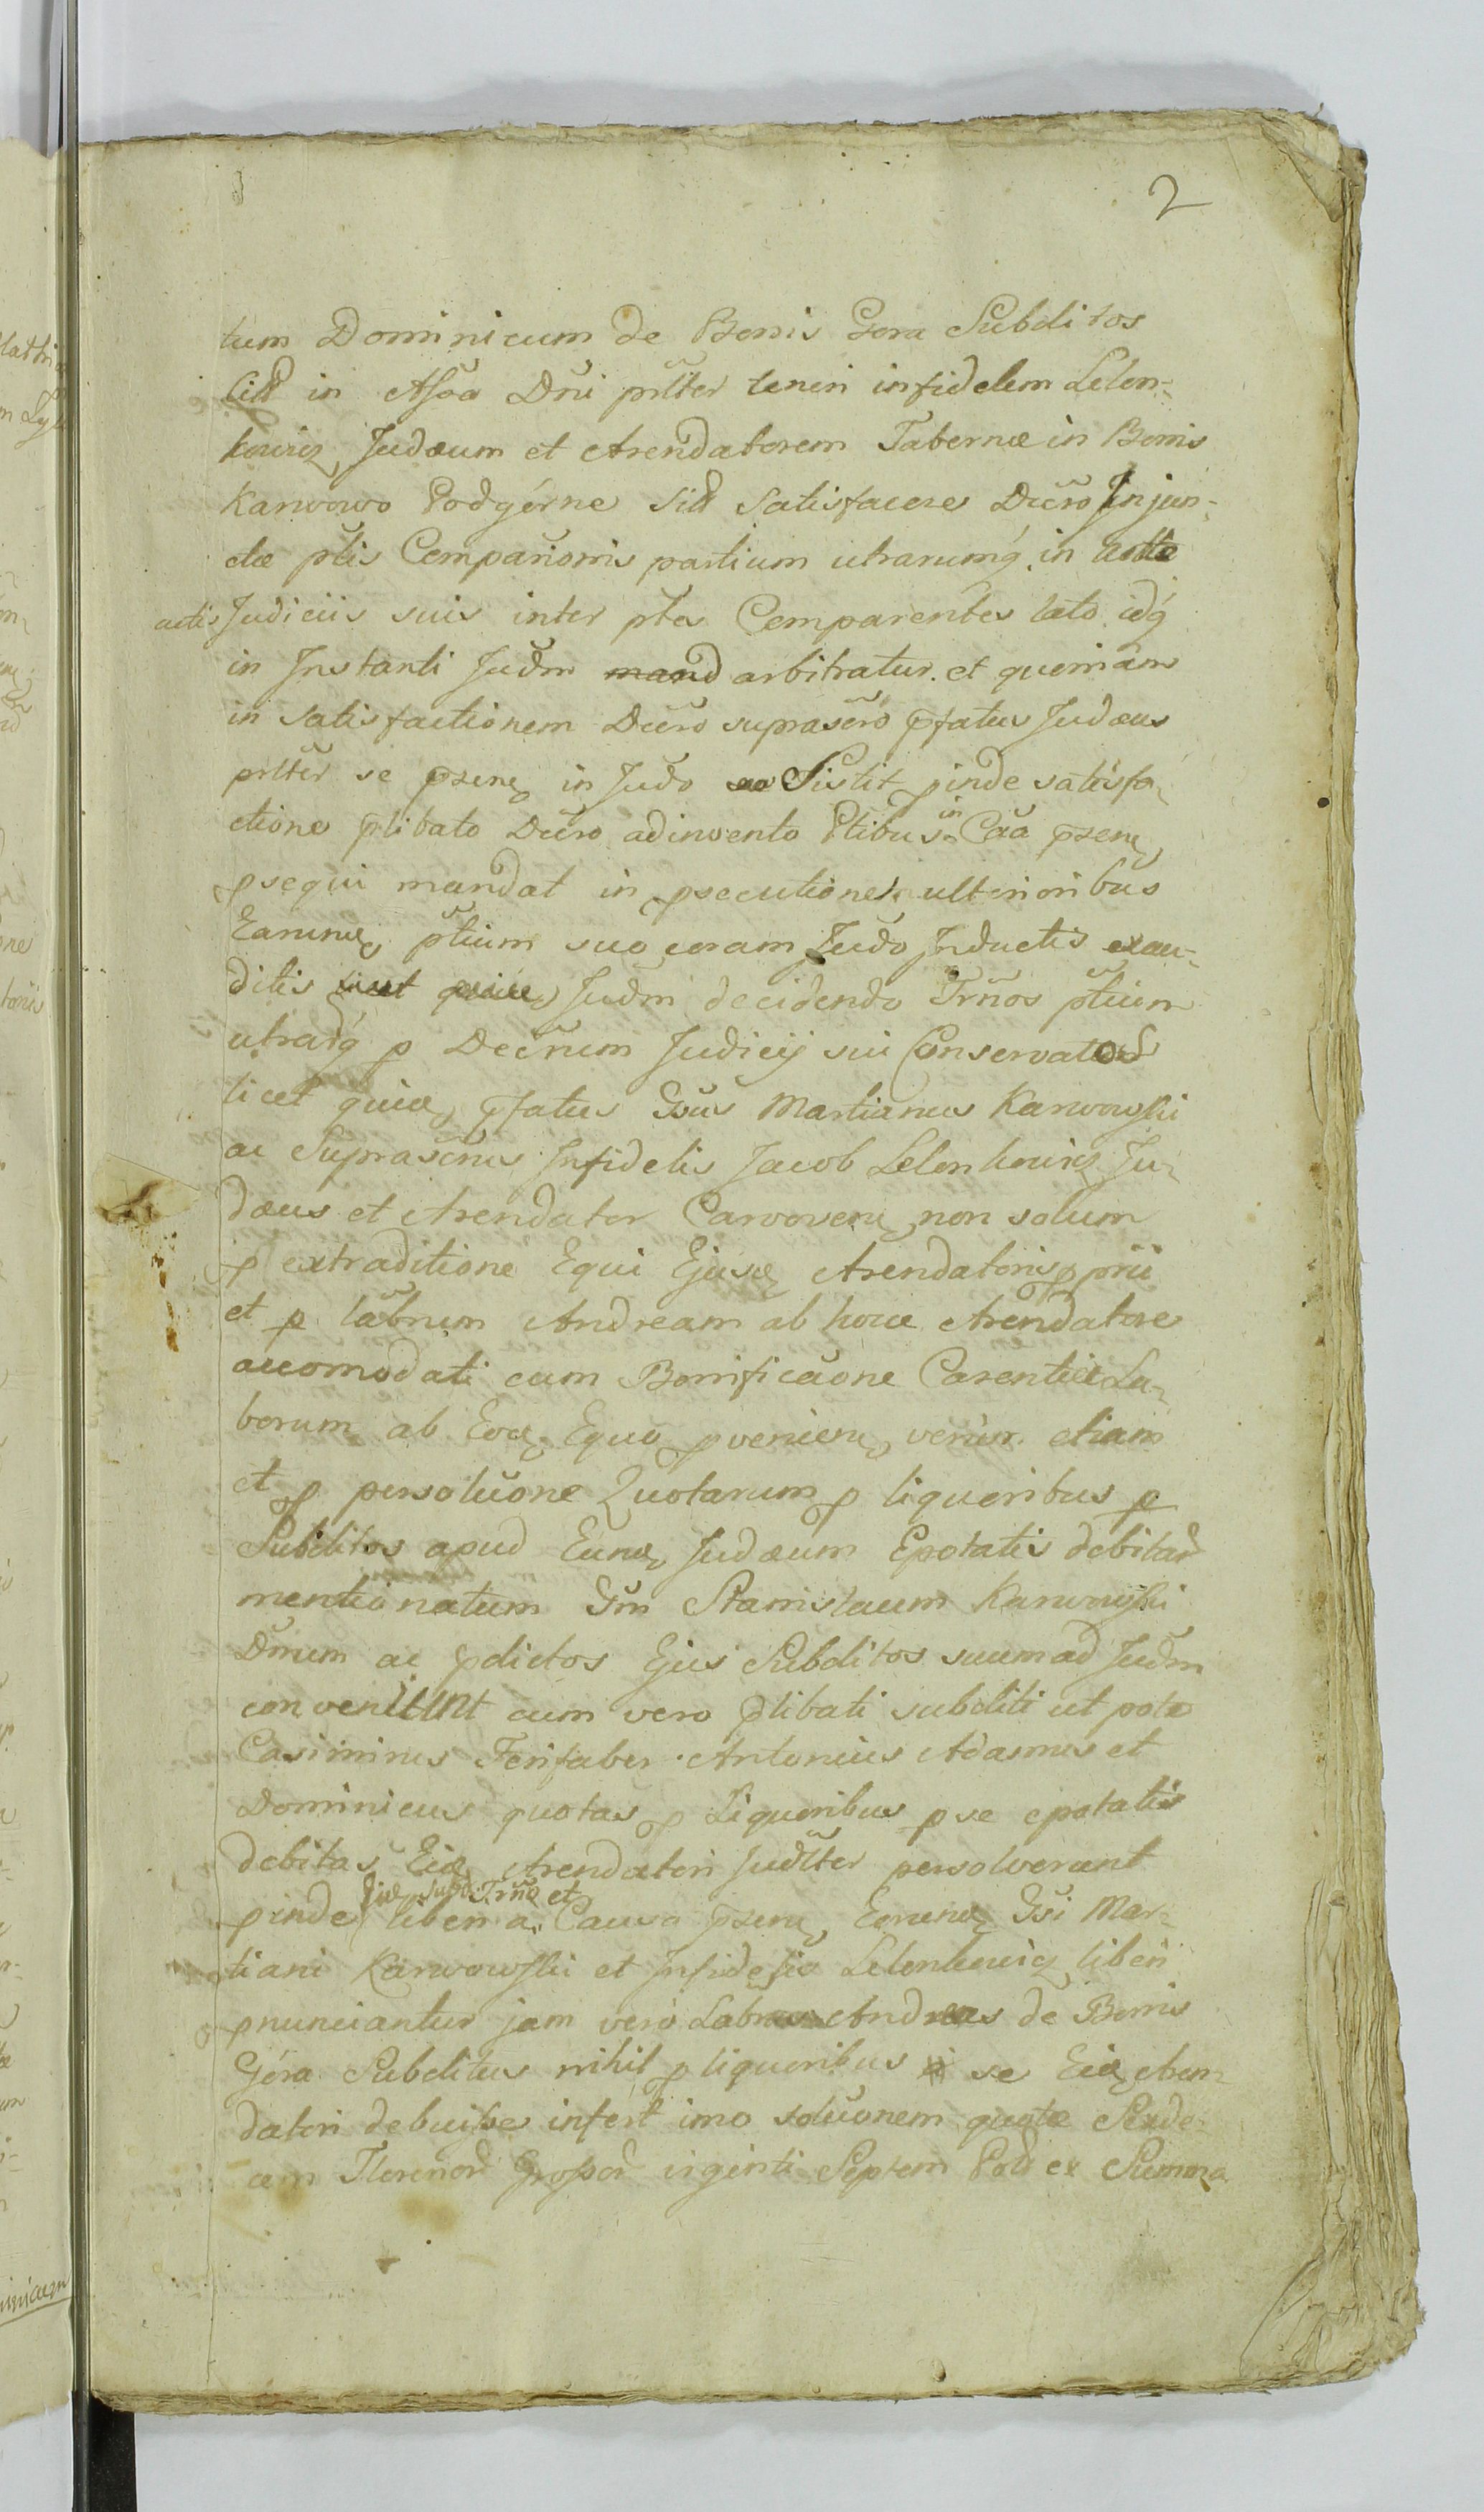 2
tum Dominicum de Bonis Gora Subditos
sitt in Assa Dni prltter teneri infidelem Lelen-
kowicz Judæum et Arendatorem Tabernæ in Bonis
Karwowo Podgórne sitt Satisfacere Dcro Injun-
ctæ ptis Comparionis partium utrarumq in
actis Judiciis suis inter ptes Comparentes lato idq
in Instanti Judm mand arbitratur. et quoniam
in Satisfactionem Dcro suprascro pfatus Judæus
prltter se præsen in Judo Sistit pinde satisfa-
ctione plibato Dcro adinvento Ptibus in Caa præsen
psequi mandat in psecutione ulterioribus
Earund ptium suo coram Judo Inductis exau-
ditis Judm decidendo Trnos ptium
utrarq p Decrum Judicij sui Conservatos
licet quid pfatus Gsus Martianus Karwowski
ac Suprascrus Infidelis Jacob Lelenkowicz Ju-
dæus et Arendator Carwoven non solum
p extraditione Equi Ejusd Arendatoris pprii
et p labrum Andream ab hocce Arendatore
accomodati cum Bonificaone Carentiæ La-
borum ab Eod Equo pvenien verum etiam
et p persoluone Quotarum p liquoribus p
Subditos apud Eund Judæum Epotatis debitar
mentionatum Gsm Stanislaum Karwowski
Dnum ac pdictos Ejus Subditos suum ad Judm
convenerunt cum vero plibati subditi ut pote
Casimirus Ferifaber Antonius Adamus et
Dominicus quotas p Liquoribus p se epotatis
debitas Eid Arendatori Judltter persolverunt
pinde Iid Subd: Trno et liberi a Causa præsen Eorund Gsi Mar-
tiani Karwowski et Infidelis Lelenkowicz liberi
pnunciantur jam vero Labrus Andreas de Bonis
Góra Subditus nihil p liquoribus se Eid Aren-
datori debuisse infert imo soluonem quotæ Sede-
cem Florenor Grossor viginti Septem Pol ex Summa